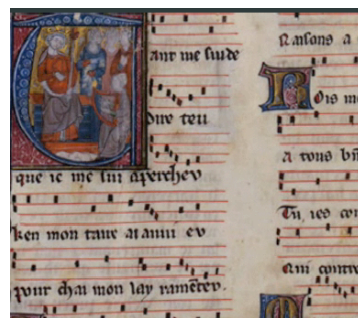 Tant me sui de
dire teu
que ie me sui aperchev
ken mon taire ai anui ev
pour chou mon lay ramentev.
Raisons a
Rois
A tous
Tu, ies
Qui contre